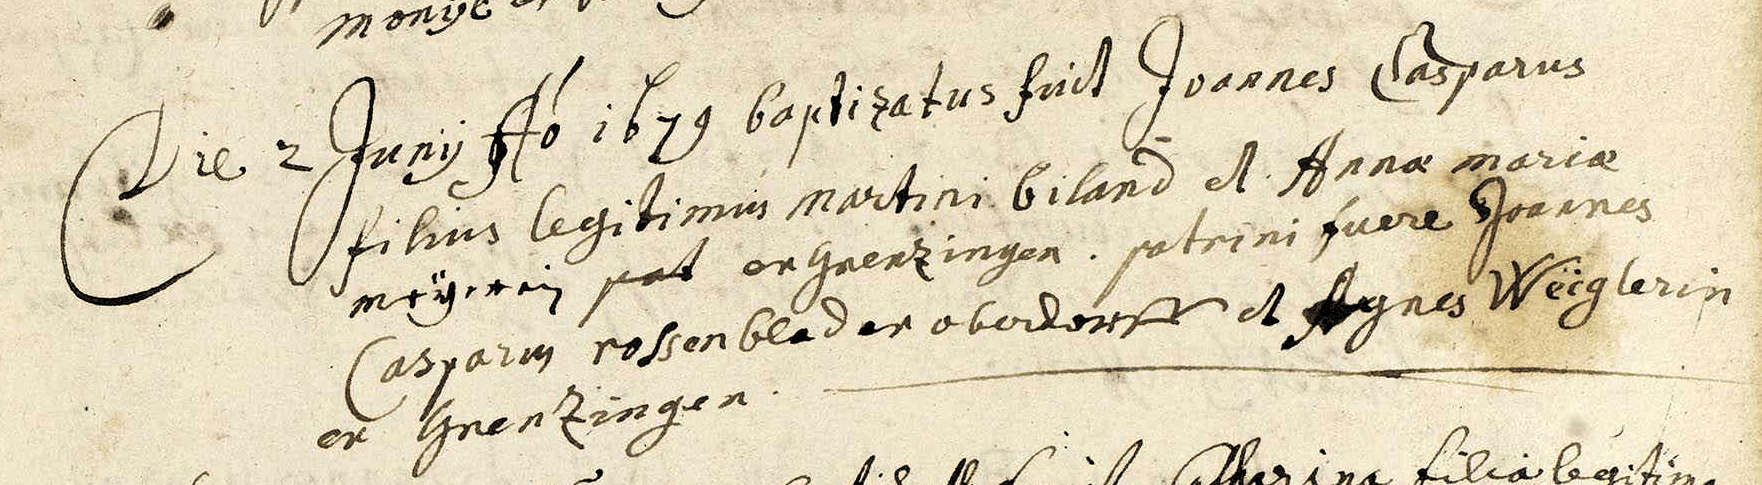 Die 2 Junij Aõ 1679 baptizatus fuit Joannes Casparus
filius legitimus martini biland et Annæ mariæ
meÿerin pat ex Grenzingen . patrini fuere Joannes
Casparus rossenblad ex oberdorff et Agnes Wëiglerin
ex Grenzingen .
filia legitima